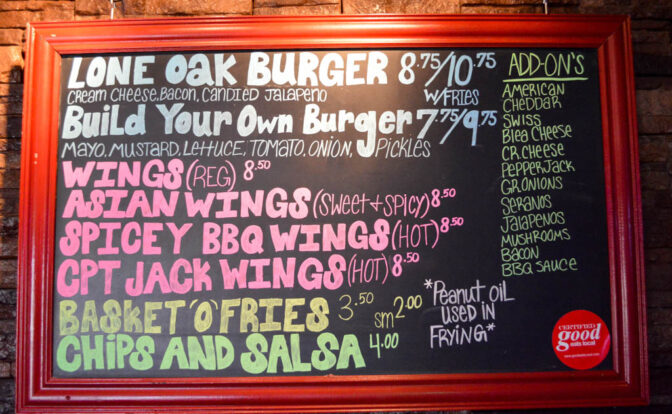 LONE OAK BURGER 8.75/10.75
CREAM CHEESE, BACON, CANDIED JALAPENO W/FRIES
Build Your Own Burger 7.75/9.75
MAYO, MUSTARD, LETTUCE, TOMATO, ONION, PICKLES
WINGS (REG) 8.50
ASIAN WINGS (SWEET + SPICY) 8.50
SPICEY BBQ WINGS (HOT) 8.50
CPT JACK WINGS (HOT) 8.50
BASKET 'O' FRIES 3.50 sm 2.00
CHIPS AND SALSA 4.00
*PEANUT OIL
USED IN
FRYING*
ADD-ON'S
AMERICAN
CHEDDAR
SWISS
BLEA CHEESE
CR. CHEESE
PEPPERJACK
GR. ONIONS
SERANOS
JALAPENOS
MUSHROOMS
BACON
BBQ SAUCE
CERTIFIED
good
eats local